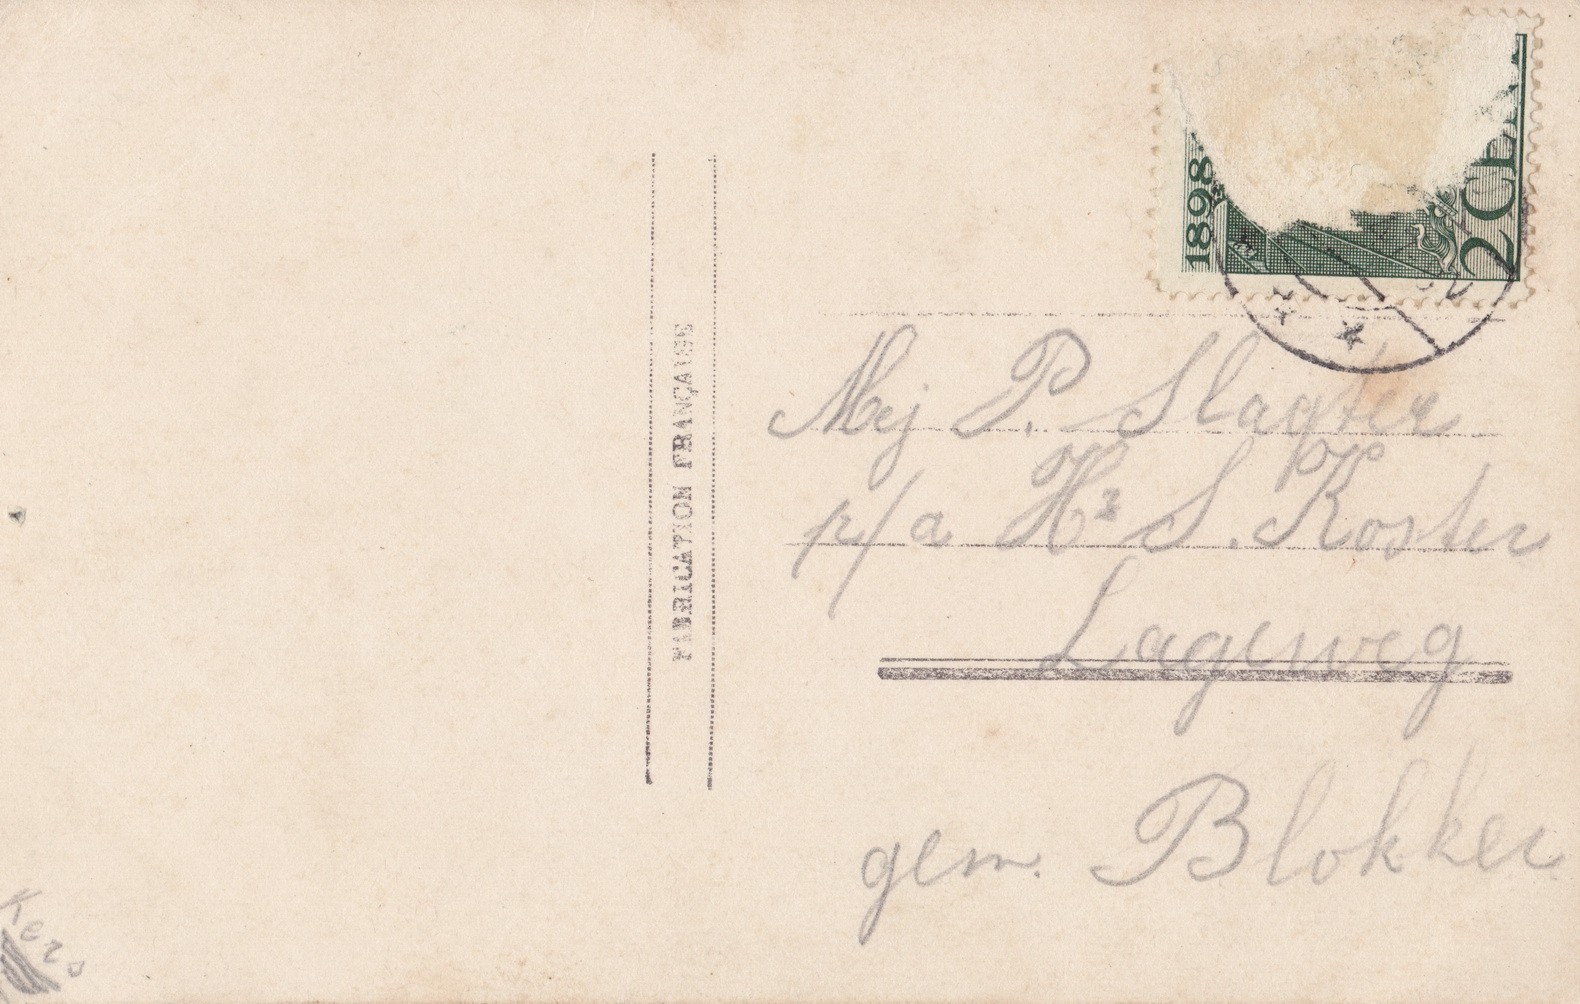 1898.
2 CE
FABRICATION FRANÇAISE
Mej P. Slagter
p/a Hr S. Koster
Lageweg
gem. Blokker